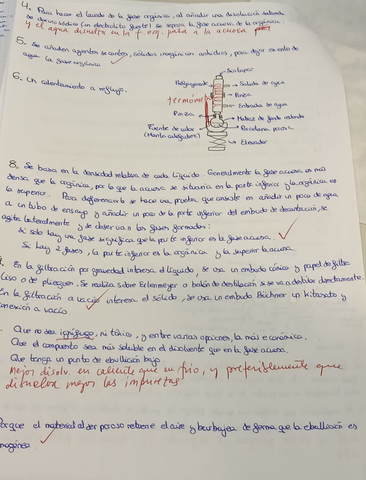 4. Para hacer el lavado de la fase orgánica, al añadir una disolución saturada
de cloruro sódico (un electrolito fuerte) se separa la fase acuosa de la orgánica.
y el agua disuelta en la f. org. pasa a la acuosa
5. Se añaden agentes secantes, sólidos inorgánicos anhidros, para dejar exento de
agua la fase orgánica
6. Un calentamiento a reflujo.
Soporte
Refrigerante
Salida de agua
termómetro
Pinza
Entrada de agua
Pinza
Matraz de fondo redondo
Fuente de calor
(Manta calefactora)
Porcelana porosa
Elevador
8. Se basa en la densidad relativa de cada líquido. Generalmente la fase acuosa es más
densa que la orgánica, por lo que la acuosa se situaría en la parte inferior y la orgánica en
la superior. Para diferenciarlo se hace una prueba, que consiste en añadir un poco de agua
a un tubo de ensayo y añadir un poco de la parte inferior del embudo de decantación, se
agita lateralmente y se observan las fases formadas:
Si solo hay una fase significa que la parte inferior es la fase acuosa.
Si hay 2 fases, la parte inferior es la orgánica y la superior la acuosa.
En la filtración por gravedad interesa el líquido, se usa un embudo cónico y papel de filtro
liso o de pliegues. Se realiza sobre Erlenmeyer o balón de destilación si se va a destilar directamente.
En la filtración a vacío interesa el sólido, se usa un embudo Büchner un kitasato y
conexión a vacío
Que no sea ignífugo, ni tóxico, y entre varias opciones, la más económica.
Que el compuesto sea más soluble en el disolvente que en la fase acuosa.
Que tenga un punto de ebullición bajo.
Mejor disolv. en caliente que en frío, y preferiblemente que
disuelva mejor las impurezas
Porque el material al ser poroso retiene el aire y burbujea de forma que la ebullición es